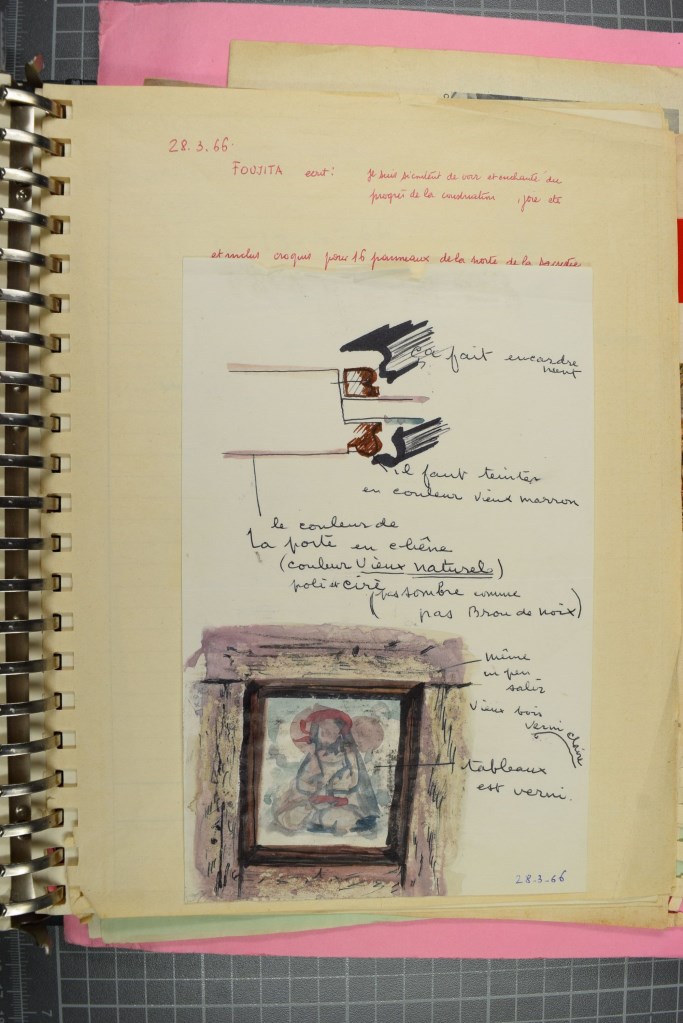 28.3.66.
FOUJITA ecrit: je suis si content de voir et enchanté du
progrès de la construction, joie etc
et inclus croquis pour 16 panneaux de la porte de la sacristie
ça fait encadre
ment
il faut teinter
en couleur vieux marron
le couleur de
la porte en chêne
(couleur Vieux naturel)
poli et ciré
(pas sombre comme
pas Brou de noix)
même
un peu
salir
Vieux bois
verni
tableaux
est verni.
28-3-66
7